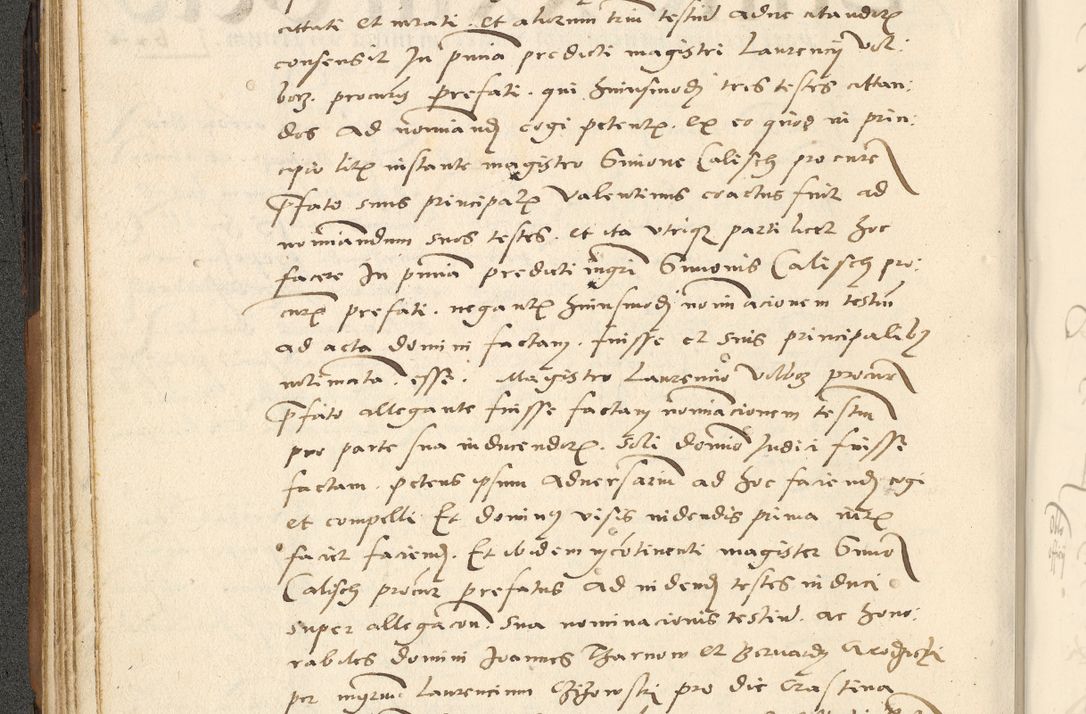 cittati et iurati. et aliorum trium testium adhuc citandorum
consensit In pnтia predicti magistri Laurencij Vol:
borz. procuris prefati. qui huiusmodi tres testes cittan:
dos ad nominandum cogi petentis. ex eo quod in prin:
cipio litis instante magistro Simone Calisch procure
pfato suus principalis Valentinus coactus fuit ad
nominandum suos testes. et ita utrique parti licet hoc
facere In pnтia predicti mgri Simonis Calisch pro:
curis prefati. negantis huiusmodi nominacionem testium
ad acta domini factam. fuisse et suis principalibus
notimata. esse. Magistro Laurencio Volborz procure
pfato allegante fuisse factam nominacionem testium
pro parte sua inducendorum. soli domino Judici fuisse
factam. petens ipsum Adversarium ad hoc faciendum cogi
et compelli Et dominus visis videndis prima iuris
faciet faciendum. Et ibidem incontinenti magister Simon
Calisch procur prefatus Ad videndum testes induci
super allegacon. sua nominacionis testium. ac hono:
rabiles domini Joannes Tharnow et Bernardum
per mgrum Laurencium pro die Crastina